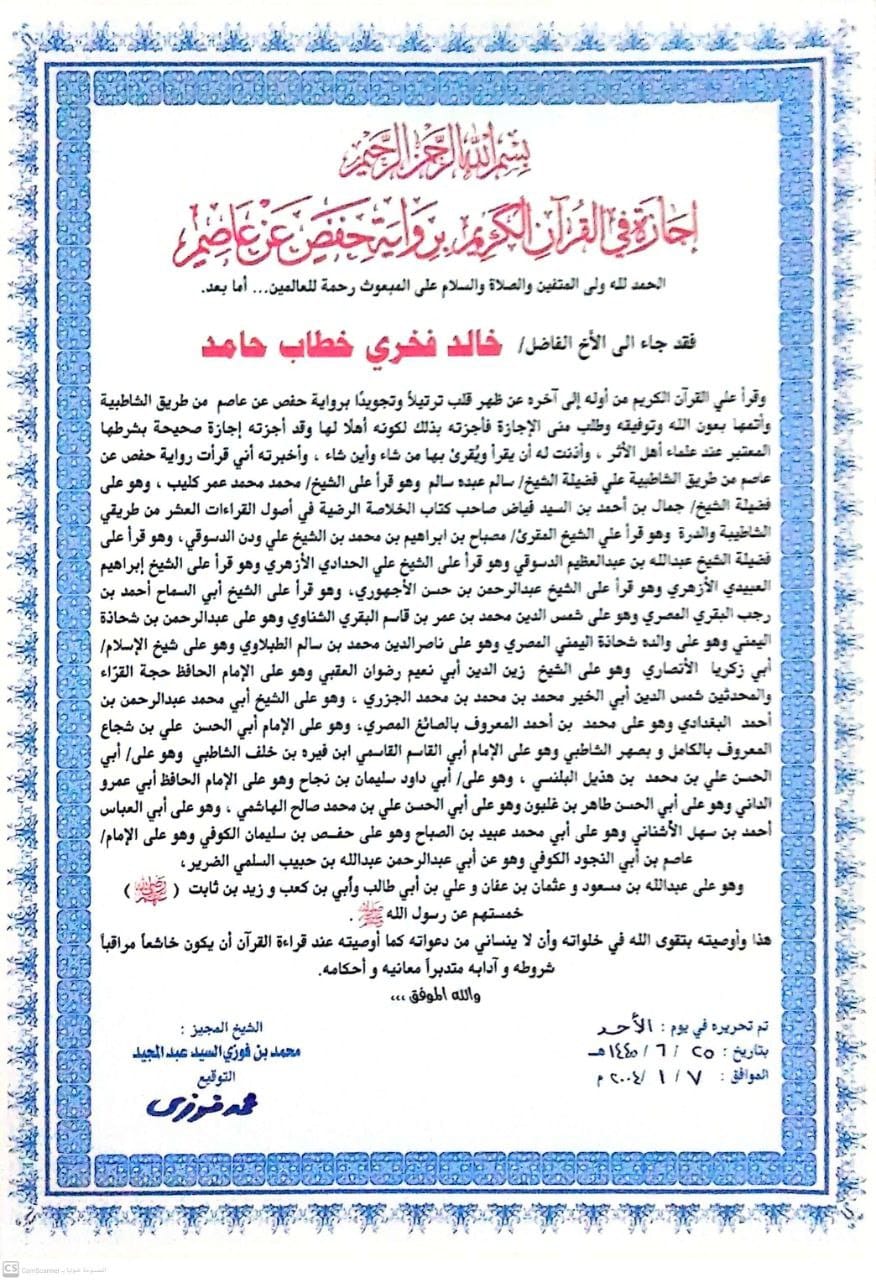 بسم الله الرحمن الرحيم
إجازة في القرآن الكريم برواية حفص عن عاصم
الحمد لله ولى المتقين والصلاة والسلام على المبعوث رحمة للعالمين... أما بعد.
فقد جاء الى الأخ الفاضل/ خالد فخري خطاب حامد
وقرأ علي القرآن الكريم من أوله إلى آخره عن ظهر قلب ترتيلاً وتجويدًا برواية حفص عن عاصم من طريق الشاطبية
وأتمها بعون الله وتوفيقه وطلب منى الإجازة فأجزته بذلك لكونه أهلًا لها وقد أجزته إجازة صحيحة بشرطها
المعتبر عند علماء أهل الأثر ، وأذنت له أن يقرأ ويُقرئ بها من شاء وأين شاء ، وأخبرته أني قرأت رواية حفص عن
عاصم من طريق الشاطبية علي فضيلة الشيخ/ سالم عبده سالم وهو قرأ على الشيخ/ محمد محمد عمر كليب ، وهو على
فضيلة الشيخ/ جمال بن أحمد بن السيد فياض صاحب كتاب الخلاصة الرضية في أصول القراءات العشر من طريقي
الشاطبية والدرة وهو قرأ علي الشيخ المقرئ/ مصباح بن ابراهيم بن محمد بن الشيخ علي ودن الدسوقي، وهو قرأ على
فضيلة الشيخ عبدالله بن عبدالعظيم الدسوقي وهو قرأ على الشيخ علي الحدادي الأزهري وهو قرأ على الشيخ إبراهيم
العبيدي الأزهري وهو قرأ على الشيخ عبدالرحمن بن حسن الأجهوري، وهو قرأ على الشيخ أبي السماح أحمد بن
رجب البقري المصري وهو على شمس الدين محمد بن عمر بن قاسم البقري الشناوي وهو على عبدالرحمن بن شحاذة
اليمني وهو على والده شحاذة اليمني المصري وهو على ناصرالدين محمد بن سالم الطبلاوي وهو على شيخ الإسلام/
أبي زكريا الأنصاري وهو على الشيخ زين الدين أبي نعيم رضوان العقبي وهو على الإمام الحافظ حجة القرّاء
والمحدثين شمس الدين أبي الخير محمد بن محمد بن محمد الجزري ، وهو على الشيخ أبي محمد عبدالرحمن بن
أحمد البغدادي وهو على محمد بن أحمد المعروف بالصائغ المصري، وهو على الإمام أبي الحسن علي بن شجاع
المعروف بالكامل و بصهر الشاطبي وهو على الإمام أبي القاسم القاسمي ابن فيره بن خلف الشاطبي وهو على/ أبي
الحسن علي بن محمد بن هذيل البلنسي ، وهو على/ أبي داود سليمان بن نجاح وهو على الإمام الحافظ أبي عمرو
الداني وهو على أبي الحسن طاهر بن غلبون وهو على أبي الحسن علي بن محمد صالح الهاشمي ، وهو على أبي العباس
أحمد بن سهل الأشناني وهو على أبي محمد عبيد بن الصباح وهو على حفص بن سليمان الكوفي وهو على الإمام/
عاصم بن أبي النجود الكوفي وهو عن أبي عبدالرحمن عبدالله بن حبيب السلمي الضرير،
وهو على عبدالله بن مسعود و عثمان بن عفان و علي بن أبي طالب وأبي بن كعب و زيد بن ثابت ( رضي الله عنهم )
خمستهم عن رسول الله ﷺ .
هذا وأوصيته بتقوى الله في خلواته وأن لا ينساني من دعواته كما أوصيته عند قراءة القرآن أن يكون خاشعاً مراقباً
شروطه و آدابه متدبراً معانيه و أحكامه.
والله الموفق ،،،
تم تحريره في يوم : الأحد
بتاريخ : ٢٥ / ٦ / ١٤٤٥هـ
الموافق : ٧ / ١ / ٢٠٠٤ م
الشيخ المجيز :
محمد بن فوزي السيد عبد المجيد
التوقيع
محمد فوزى
CS CamScanner الممسوحة ضوئيا بـ